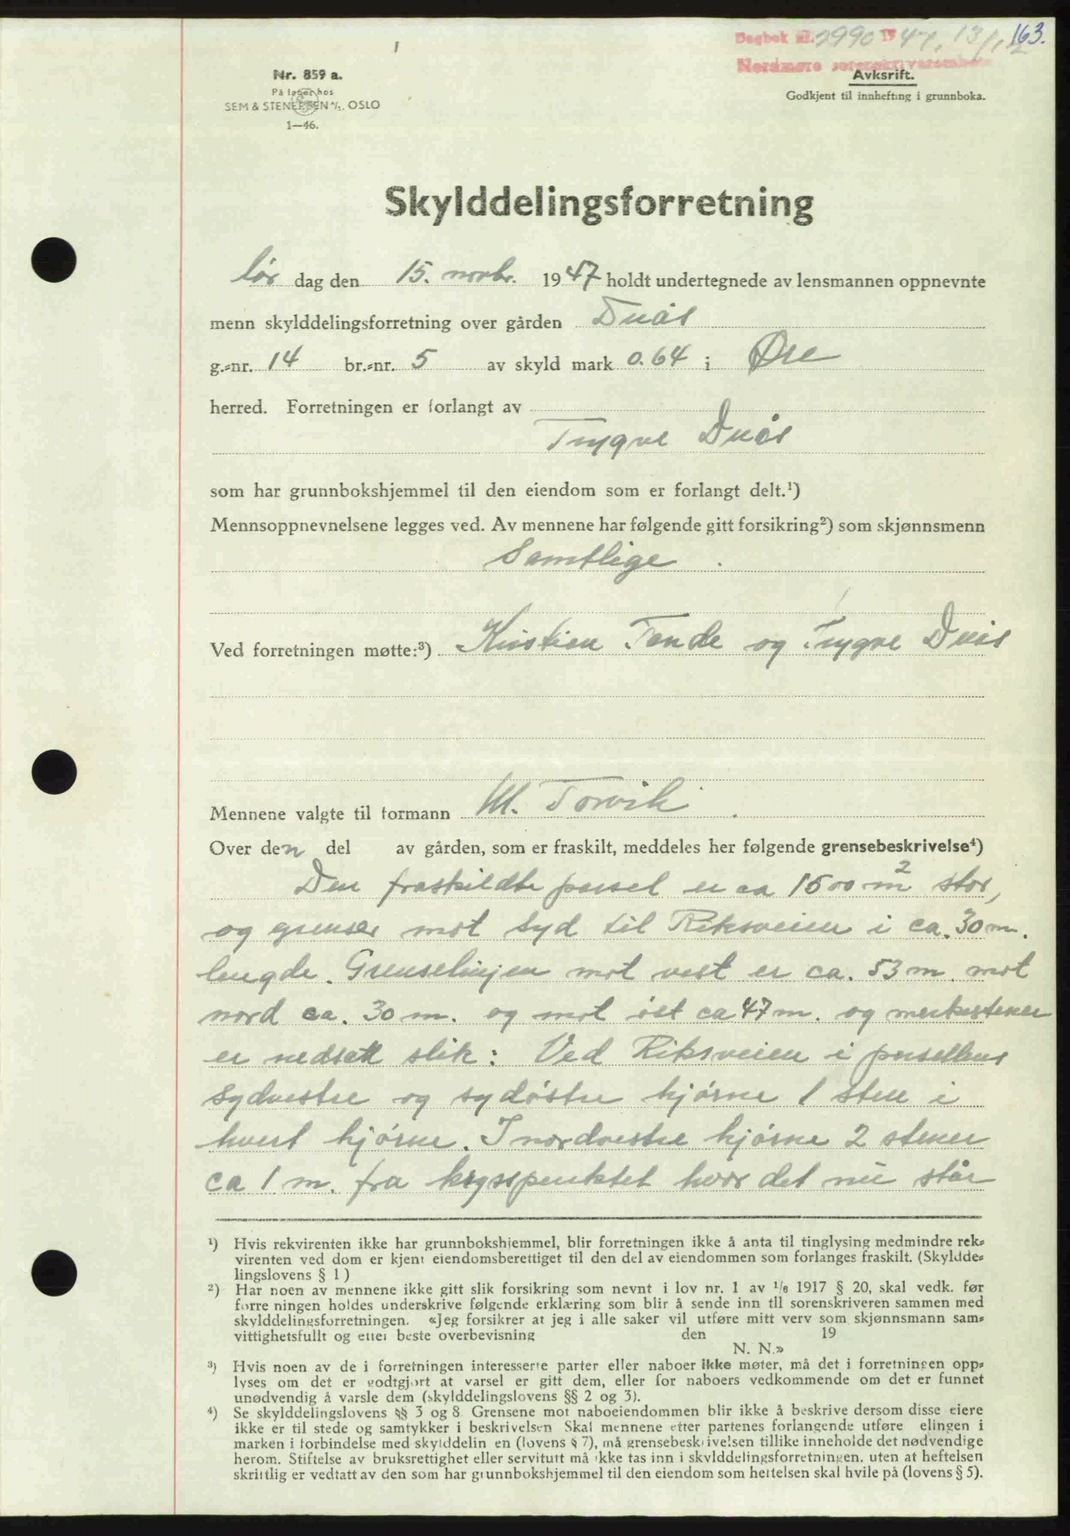 163.
Dagbok nr. 2990 1947, 13/12
Nordmøre sorenskriverembete
1
Nr. 859 a.
På lager hos
SEM & STENERSEN A/S, OSLO
1—46.
Avksrift.
Godkjent til innhefting i grunnboka.
Skylddelingsforretning
lør dag den 15. novbr. 1947 holdt undertegnede av lensmannen oppnevnte
menn skylddelingsforretning over gården Duås
g.-nr. 14 br.-nr. 5 av skyld mark 0.64 i Øre
herred. Forretningen er forlangt av
Trygve Duås
som har grunnbokshjemmel til den eiendom som er forlangt delt.¹)
Mennsoppnevnelsene legges ved. Av mennene har følgende gitt forsikring²) som skjønnsmenn
Samtlige.
Ved forretningen møtte:³) Kristian Tende og Trygve Duås
Mennene valgte til formann M. Torvik.
Over den del av gården, som er fraskilt, meddeles her følgende grensebeskrivelse⁴)
Den fraskildte parsel er ca 1500 m² stor,
og grenser mot syd til Riksveien i ca. 30 m.
lengde. Grenselinjen mot vest er ca. 53 m. mot
nord ca. 30 m. og mot øst ca 47 m. og merkestener
er nedsatt slik: Ved Riksveien i parsellens
sydvestre og sydøstre hjørne 1 sten i
hvert hjørne. I nordvestre hjørne 2 stener
ca 1 m. fra krysspunktet hvor det nu står
¹) Hvis rekvirenten ikke har grunnbokshjemmel, blir forretningen ikke å anta til tinglysing medmindre rek-
virenten ved dom er kjent eiendomsberettiget til den del av eiendommen som forlanges fraskilt. (Skyldde-
lingslovens § 1)
²) Har noen av mennene ikke gitt slik forsikring som nevnt i lov nr. 1 av 1/6 1917 § 20, skal vedk. før
forretningen holdes underskrive følgende erklæring som blir å sende inn til sorenskriveren sammen med
skylddelingsforretningen. «Jeg forsikrer at jeg i alle saker vil utføre mitt verv som skjønnsmann sam-
vittighetsfullt og etter beste overbevisning den 19
N. N.»
³) Hvis noen av de i forretningen interesserte parter eller naboer ikke møter, må det i forretningen opp-
lyses om det er godtgjort at varsel er gitt dem, eller for naboers vedkommende om det er funnet
unødvendig å varsle dem (skylddelingslovens §§ 2 og 3).
⁴) Se skylddelingslovens §§ 3 og 8. Grensene mot naboeiendommen blir ikke å beskrive dersom disse eiere
ikke er til stede og samtykker i beskrivelsen Skal mennene etter partenes forlangende utføre elingen i
marken i forbindelse med skylddelin en (lovens § 7), må grensebeskrivelsen tillike inneholde det nødvendige
herom. Stiftelse av bruksrettighet eller servitutt må ikke tas inn i skylddelingsforretningen, uten at heftelsen
skriftlig er vedtatt av den som har grunnbokshjemmel til den eiendom som heftelsen skal hvile på (lovens § 5).